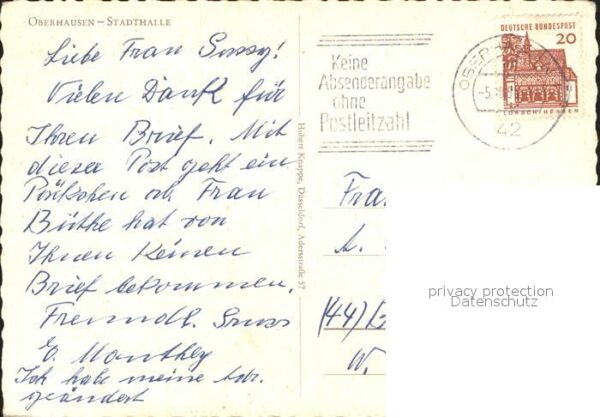 OBERHAUSEN – STADTHALLE
Liebe Frau Sussy!
Vielen Dank für
Ihren Brief. Mit
dieser Post geht ein
Päckchen ab. Frau
Büthe hat von
Ihnen keinen
Brief bekommen.
Freundl. Gruss
E. Manthey
Ich habe meine Adr.
geändert
Hubert Knappe, Düsseldorf, Adersstraße 57
Keine
Absenderangabe
ohne
Postleitzahl
42
DEUTSCHE BUNDESPOST
20
LORSCH/HESSEN
Fra
(44)
W.
privacy protection
Datenschutz